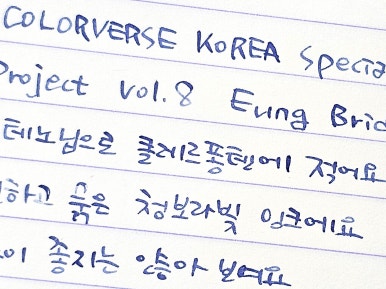 COLORVERSE KOREA Specia
Project vol.8 Eung Brid
테노닙으로 클레르퐁텐에 적어요
하고 청보라빛 잉크에요
이 좋지는 않아 보여요